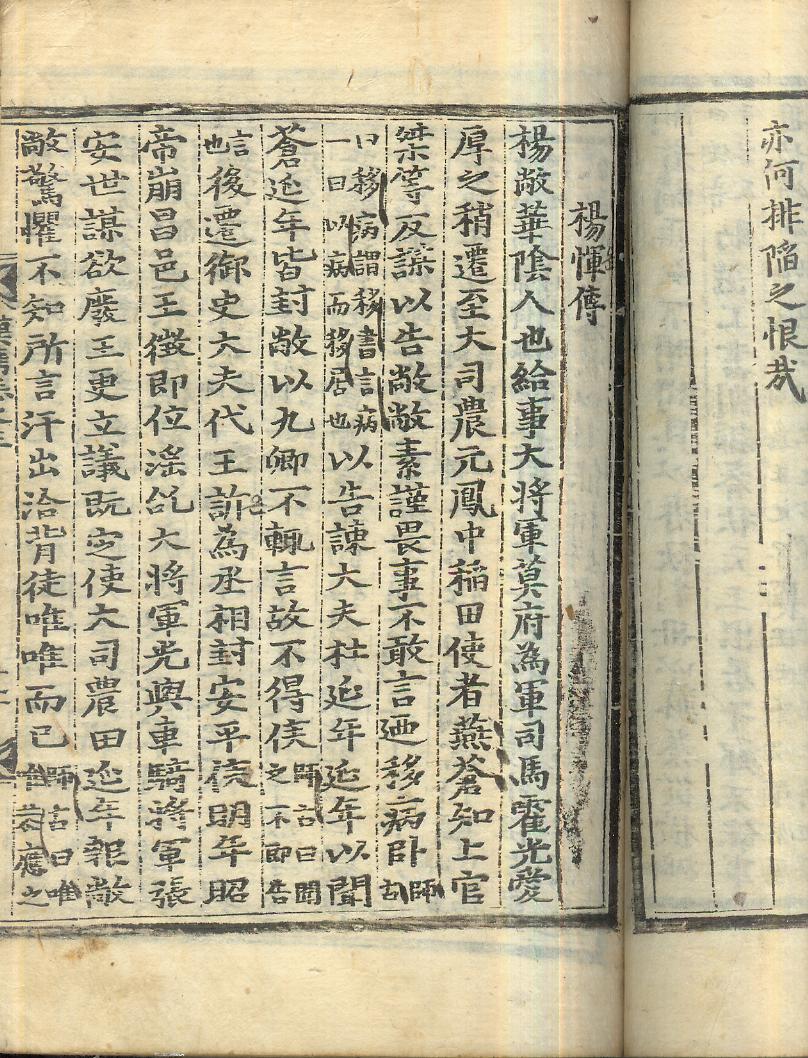 亦何排陷之恨哉
楊惲傳
楊敞華陰人也給事大將軍莫府為軍司馬霍光愛
厚之稍遷至大司農元鳳中稲田使者燕蒼知上官
桀等反謀以告敞敞素謹畏事不敢言廼移病卧師古
曰移病謂移書言病
一曰以病而移居也以告諫大夫杜延年延年以聞
蒼延年皆封敞以九卿不輒言故不得侯師古曰聞
之不即告
言也後遷御史大夫代王訢為丞相封安平侯明年昭
帝崩昌邑王徵即位淫乱大將軍光與車騎將軍張
安世謀欲廢王更立議既定使大司農田延年報敞
敞驚懼不知所言汗出洽背徒唯唯而已師古曰唯
唯恭應之